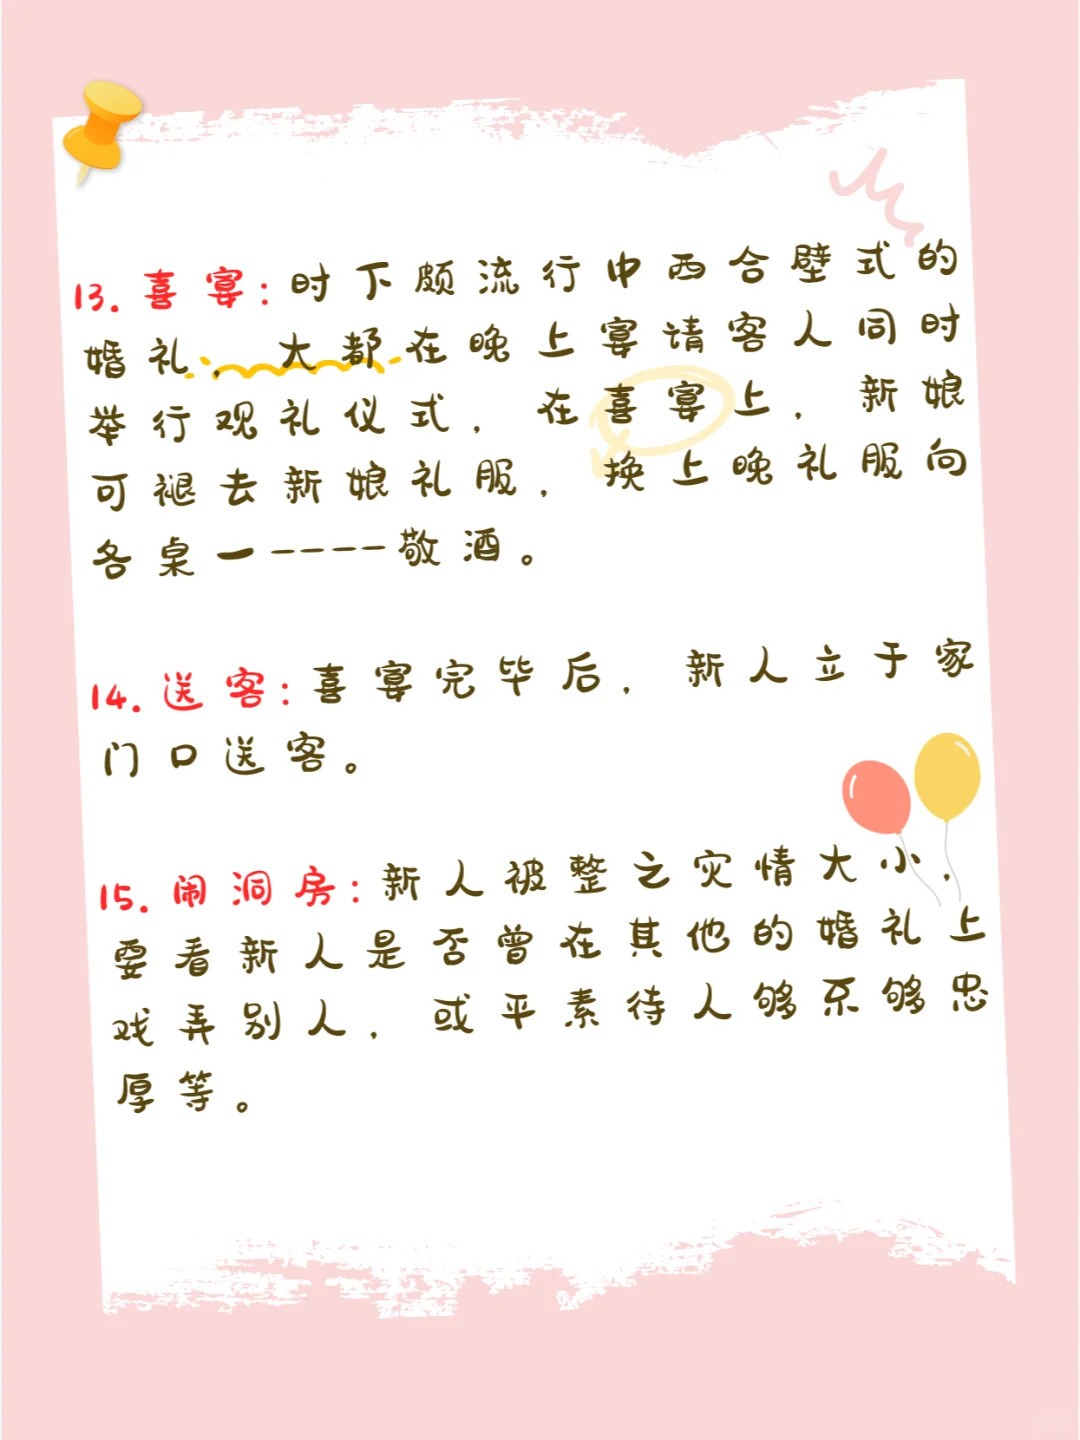 13. 喜宴：时下颇流行中西合壁式的
婚礼，大都在晚上宴请客人同时
举行观礼仪式，在喜宴上，新娘
可褪去新娘礼服，换上晚礼服向
各桌一----敬酒。
14. 送客：喜宴完毕后，新人立于家
门口送客。
15. 闹洞房：新人被整之灾情大小，
要看新人是否曾在其他的婚礼上
戏弄别人，或平素待人够不够忠
厚等。